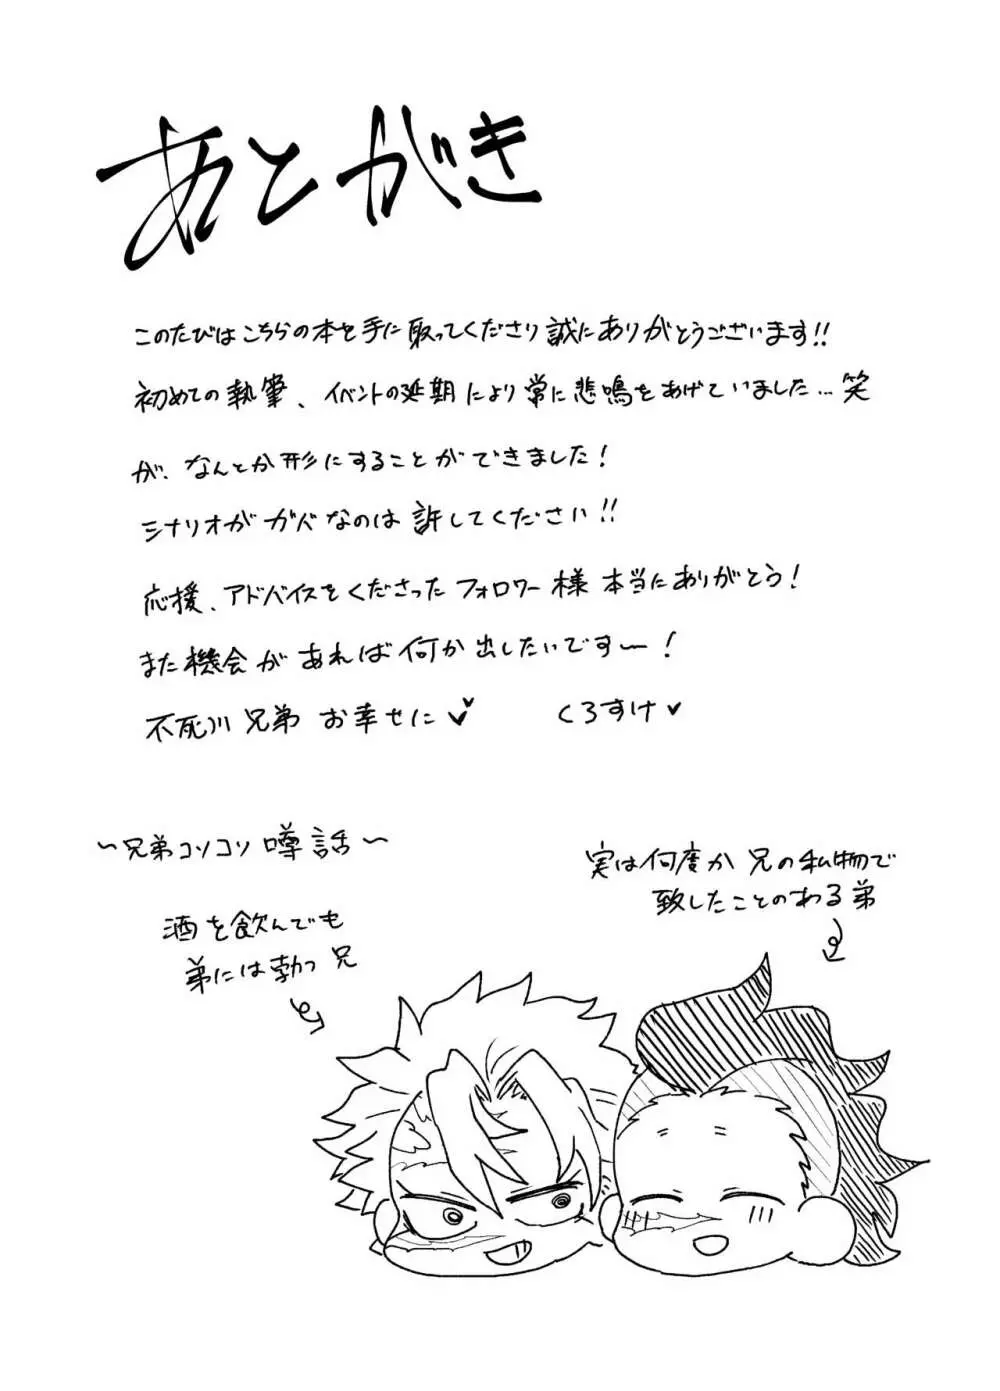 あとがき
このたびはこちらの本を手に取ってくださり誠にありがとうございます!!
初めての執筆、イベントの延期により常に悲鳴をあげていました…笑
が、なんとか形にすることができました!
シナリオがガバなのは許してください!!
応援、アドバイスをくださったフォロワー様本当にありがとう!
また機会があれば何か出したいです〜!
不死川兄弟お幸せに♥ くろすけ♥
〜兄弟コソコソ噂話〜
酒を飲んでも
弟には勃つ兄
実は何度か兄の私物で
致したことのある弟